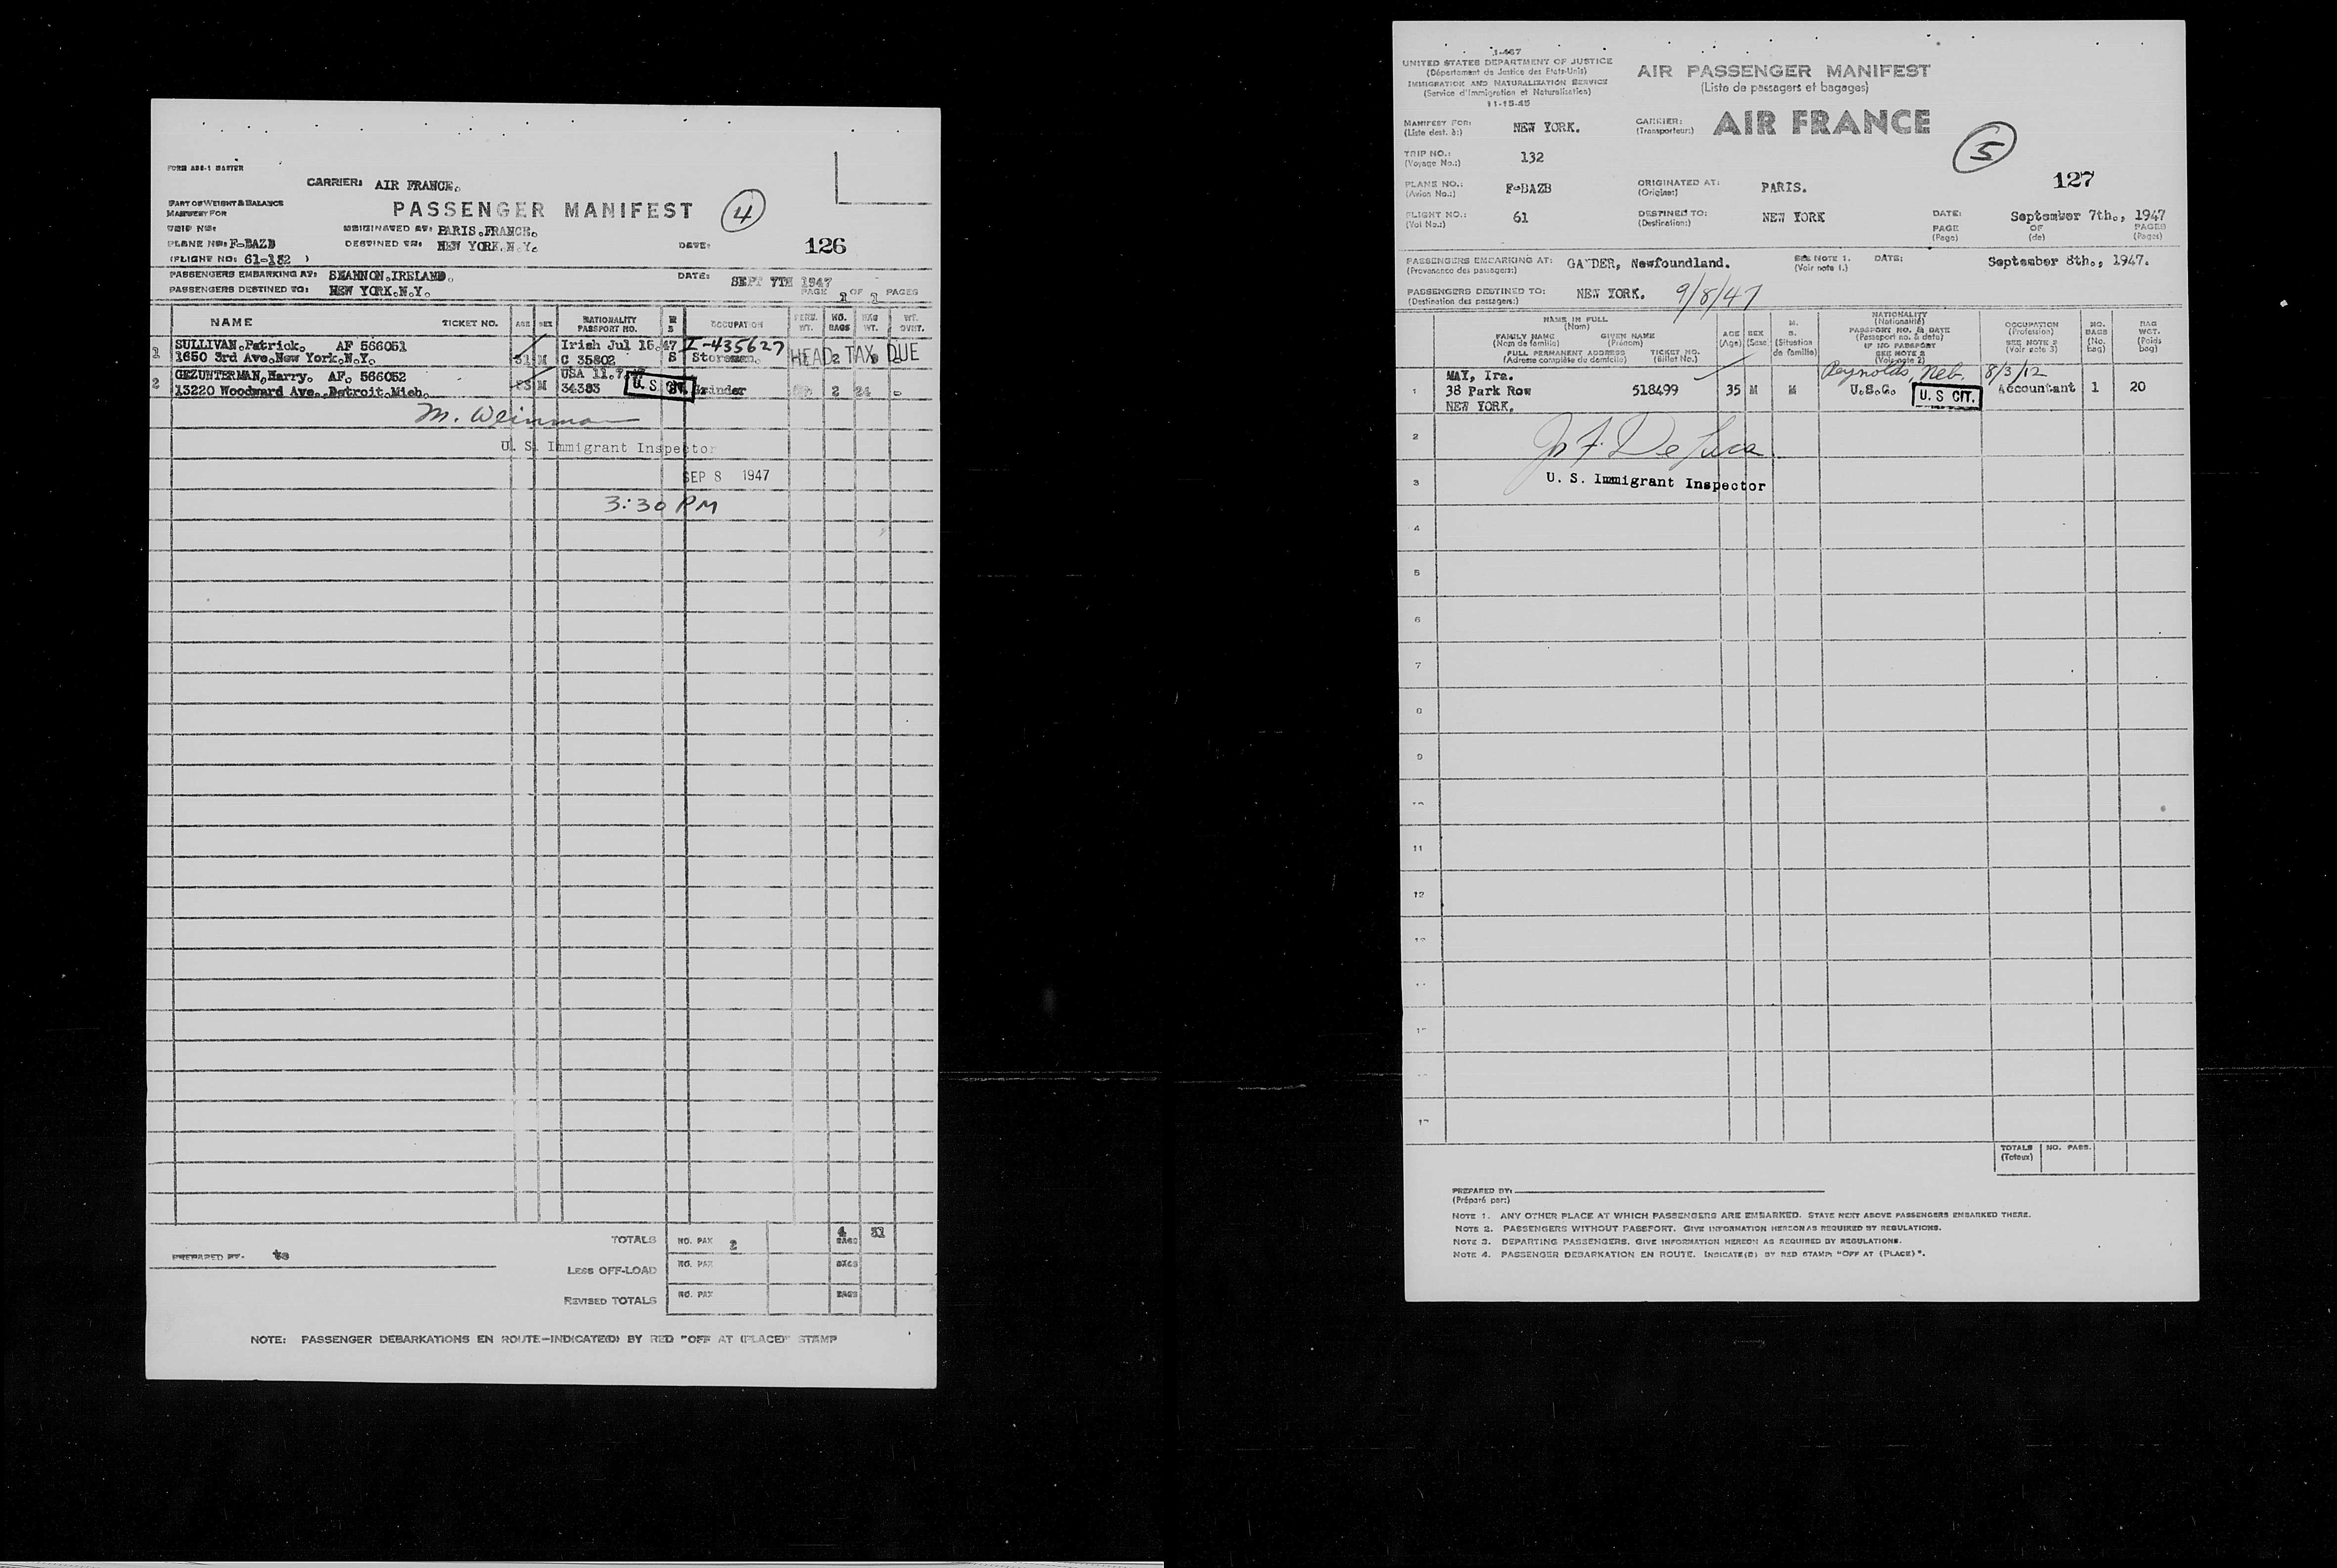 FORM ABS-1 MASTER
CARRIER: AIR FRANCE.
PART OF WEIGHT & BALANCE
MANIFEST FOR
PASSENGER MANIFEST
4
TRIP NO:
ORIGINATED AT: PARIS.FRANCE.
PLANE NO: F-BAZB
DESTINED TO: NEW YORK.N.Y.
DATE:
126
(FLIGHT NO: 61-132 )
PASSENGERS EMBARKING AT: SHANNON.IRELAND.
DATE: SEPT 7TH 1947
PASSENGERS DESTINED TO: NEW YORK.N.Y.
PAGE 1 OF 1 PAGES
NAME TICKET NO. AGE SEX NATIONALITY PASSPORT NO. OCCUPATION PERS. WT. NO. BAGS BAG WT. WT. OVRT.
1 SULLIVAN.Patrick. AF 566051 Irish Jul 15.47 I-435627
1650 3rd Ave.New York.N.Y. 31 M C 35802 S Storeman. HEAD TAX DUE
2 GEZUNTERMAN,Harry. AF. 566052 USA 11.7.
13220 Woodward Ave.,Detroit.Mich. M 34383 U. S. CIT. Grinder 2 24
M. Weinman
U. S. Immigrant Inspector
SEP 8 1947
3:30 PM
TOTALS NO. PAX 2 4 BAGS 31
PREPARED BY:
LESS OFF-LOAD NO. PAX BAGS
REVISED TOTALS NO. PAX BAGS
NOTE: PASSENGER DEBARKATIONS EN ROUTE—INDICATE(D) BY RED "OFF AT (PLACE)" STAMP
I-467
UNITED STATES DEPARTMENT OF JUSTICE
(Département de Justice des Etats-Unis)
IMMIGRATION AND NATURALIZATION SERVICE
(Service d'Immigration et Naturalisation)
11-15-45
AIR PASSENGER MANIFEST
(Liste de passagers et bagages)
MANIFEST FOR: NEW YORK.
(Liste dest. à:)
CARRIER: AIR FRANCE
(Transporteur:)
5
TRIP NO.: 132
(Voyage No.:)
127
PLANE NO.: F-BAZB
(Avion No.:)
ORIGINATED AT: PARIS.
(Origine:)
FLIGHT NO.: 61
(Vol No.:)
DESTINED TO: NEW YORK
(Destination:)
DATE: September 7th., 1947
PAGE OF PAGES
(Page) (de) (Pages)
PASSENGERS EMBARKING AT: GANDER, Newfoundland.
(Provenance des passagers:)
SEE NOTE 1. DATE: September 8th., 1947.
(Voir note 1.)
PASSENGERS DESTINED TO: NEW YORK. 9/8/47
(Destination des passagers:)
NAME IN FULL
(Nom)
FAMILY NAME GIVEN NAME
(Nom de famille) (Prénom)
FULL PERMANENT ADDRESS TICKET NO.
(Adresse complète du domicile) (Billet No.)
AGE (Age)
SEX (Sexe)
M. S. (Situation de famille)
NATIONALITY
(Nationalité)
PASSPORT NO. & DATE
(Passeport no. & date)
IF NO PASSPORT
SEE NOTE 2
(Voir note 2)
OCCUPATION
(Profession)
SEE NOTE 3
(Voir note 3)
NO. BAGS (No. bag)
BAG WGT. (Poids bag)
MAY, Ira. Reynolds, Neb. 8/3/12
1 38 Park Row 518499 35 M M U.S.C. U. S CIT. Accountant 1 20
NEW YORK.
2
Jn F. De Luca
3 U. S. Immigrant Inspector
4
5
6
7
8
9
11
12
TOTALS NO. PASS.
(Totaux)
PREPARED BY:
(Préparé par:)
NOTE 1. ANY OTHER PLACE AT WHICH PASSENGERS ARE EMBARKED. STATE NEXT ABOVE PASSENGERS EMBARKED THERE.
NOTE 2. PASSENGERS WITHOUT PASSPORT. GIVE INFORMATION HEREON AS REQUIRED BY REGULATIONS.
NOTE 3. DEPARTING PASSENGERS. GIVE INFORMATION HEREON AS REQUIRED BY REGULATIONS.
NOTE 4. PASSENGER DEBARKATION EN ROUTE. INDICATE(D) BY RED STAMP: "OFF AT (PLACE)".